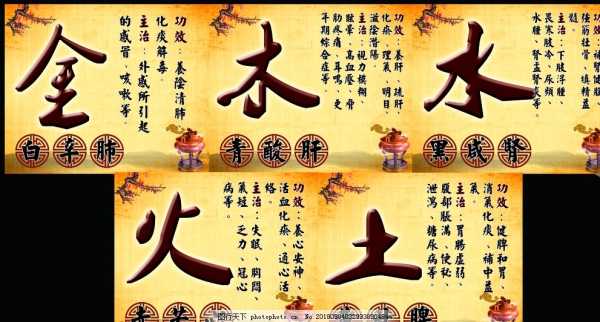 金
功效：養陰清肺
化痰解毒。
主治：外感所引起
的感冒、咳嗽等。
白 辛 肺
木
功效：養肝、疏肝
化瘀、理氣、明目、
滋陰潛陽。
主治：視力模糊
眩暈、高血壓、脅
肋疼痛、耳鳴、更
年期綜合症等
青 酸 肝
水
功效：補腎健
強筋壯骨、填精益
髓。
主治：下肢浮腫
畏寒肢冷、尿頻、
水腫、腎盂腎炎等。
黑 咸 腎
火
功效：養心安神、
活血化瘀、通心活
絡。
主治：失眠、胸悶、
氣短、乏力、冠心
病等。
赤 苦
土
功效：健脾和胃、
消氣化痰、補中益
氣。
主治：胃腸虛弱、
腹部脹滿、便秘、
泄瀉、糖尿病等。
脾
图行天下 photophoto.cn